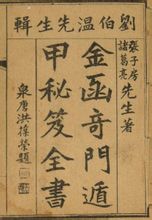 劉伯温先生輯
張子房
諸葛亮
先生著
金函奇門遁
甲秘笈全書
泉唐洪葆榮題